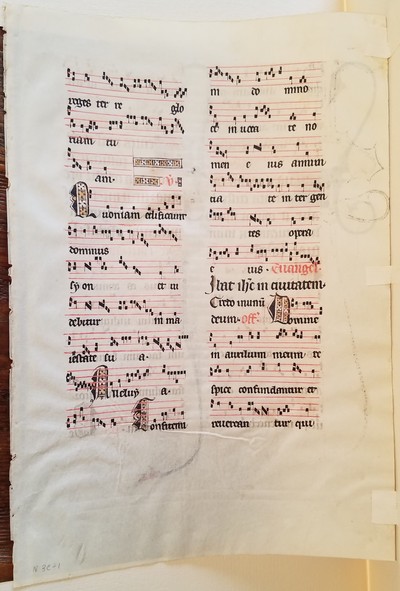 reges ter re glo
riam tu
am. V.
Quoniam edificavit
dominus
syon et vi
debitur in ma
iestate su a.
Alleluya
Confitemi
ni do mino
et in voca te no
men e ius annun
cia te in ter gen
tes opera
e ius. Euangel.
Ibat ihc in ciuitatem
Credo in unū
deum. off. Domine
in auxilium meum re
spice confundantur et
reuerean tur qui